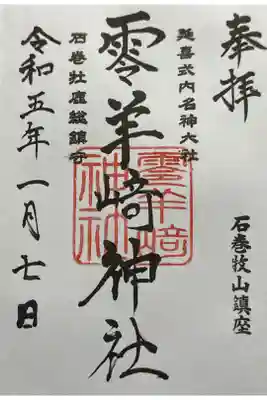 奉拝
石巻牧山鎮座
延喜式内名神大社
零羊崎神社
零羊崎神社
石巻牡鹿総鎮守
令和五年一月七日